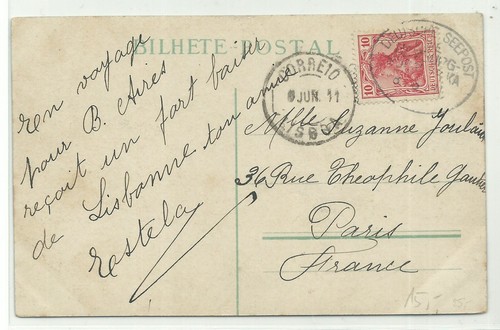 BILHETE-POSTAL
En voyage
pour B. Aires
reçoit un fort baiser
de Lisbonne ton amie
Estela
10 10
DEUTSCHE SEEPOST
CORREIO
6 JUN. 11
LISBOA
Mlle Suzanne
36 Rue Theophile Gautier
Paris
France
15,-